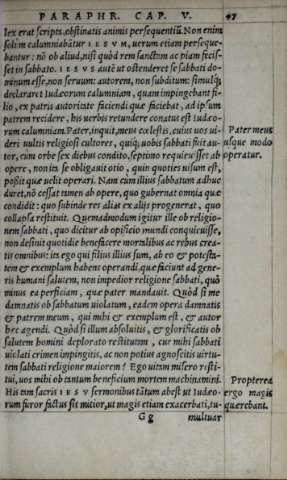 PARAPHR. CAP. V. 47
lex erat scripta, obstinatis animis persequentiũ. Non enim
solùm calumniabãtur IESVM, uerum etiam perseque-
bantur: nõ ob aliud, nisi quòd rem sanctam ac piam fecis-
set in sabbato. IESVS autẽ ut ostenderet se sabbati do-
minum esse, non seruum: autorem, non subditum: simulq́;
declararet Iudæorum calumniam, quam impingebant fi-
lio, ex patris autoritate faciendi quæ faciebat, ad ipsum
patrem recidere, his uerbis retundere conatus est Iudæo-
rum calumniam. Pater, inquit, meus cœlestis, cuius uos ui-
deri uultis religiosi cultores, quiq́; uobis sabbati fuit au-
tor, cum orbe sex diebus condito, septimo requieuisset ab
opere, non ita se obligauit otio, quin quoties uisum est,
possit quæ uelit operari. Nam cùm illius sabbatum adhuc
duret, nõ cessat tamen ab opere, quo gubernat omnia quæ
condidit: quo subinde res alias ex alijs progenerat, quo
collapsa restituit. Quemadmodum igitur ille ob religio-
nem sabbati, quo dicitur ab opificio mundi conquieuisse,
non desinit quotidie benefacere mortalibus ac rebus crea-
tis omnibus: ita ego qui filius illius sum, ab eo & potesta-
tem & exemplum habens operandi quæ faciunt ad gene-
ris humani salutem, non impedior religione sabbati, quò
minus ea perficiam, quæ pater mandauit. Quòd si me
damnatis ob sabbatum uiolatum, eadem opera damnatis
& patrem meum, qui mihi & exemplum est, & autor
hæc agendi. Quòd si illum absoluitis, & glorificatis ob
salutem homini deplorato restitutam, cur mihi sabbati
uiolati crimen impingitis, ac non potius agnoscitis uirtu-
tem sabbati religione maiorem? Ego uitam misero resti-
tui, uos mihi ob tantum beneficium mortem machinamini.
His tam sacris IESV sermonibus tãtum abest ut Iudæo-
rum furor factus sit mitior, ut magis etiam exacerbati, tu-
Gg multuar
Pater meus
usque modo
operatur.
Propterea
ergo magis
quærebant.